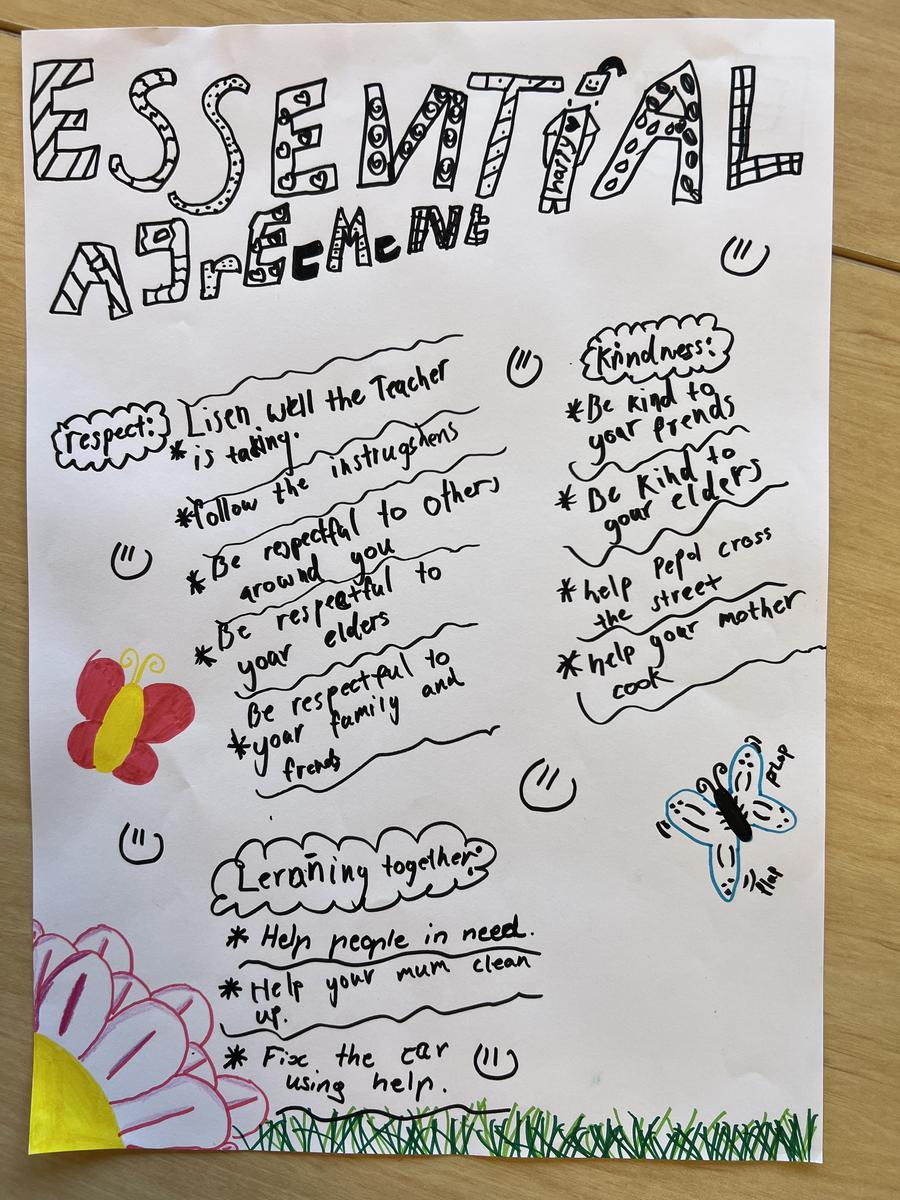 ESSENTiAL
AgrEeMeNt
respect:
Lisen well the Teacher
* is taking.
* follow the instrugshens
* Be respectful to others
around you
* Be respectful to
your elders
Be respectful to
* your family and
frends
Kindness:
* Be kind to
your frends
* Be kind to
your elders
* help pepol cross
the street
* help your mother
cook
Leraning together:
* Help people in need.
* Help your mum clean
up.
* Fix the car
using help.
happy
flap
flap